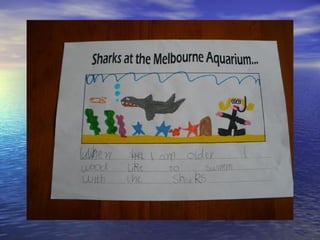 Sharks at the Melbourne Aquarium...
When I am older I
wood like to swimm
with the sharks